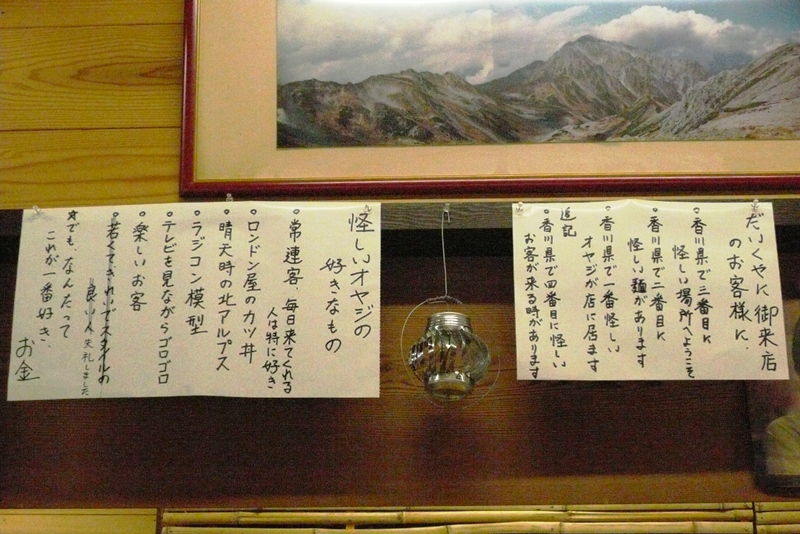 だいくやに御来店
のお客様に、
◦香川県で三番目に
怪しい場所へようこそ
◦香川県で二番目に
怪しい麺があります
◦香川県で一番怪しい
オヤジが店に居ます
追記
◦香川県で四番目に怪しい
お客が来る時があります
怪しいオヤジの
好きなもの
◦常連客、毎日来てくれる
人は特に好き
◦ロンドン屋のカツ丼
◦晴天時の北アルプス
◦ラジコン模型
◦テレビを見ながらゴロゴロ
◦楽しいお客
◦若くてきれいでスタイルの
良い人 失礼しました
☆でも、なんたって
これが一番好き、
お金